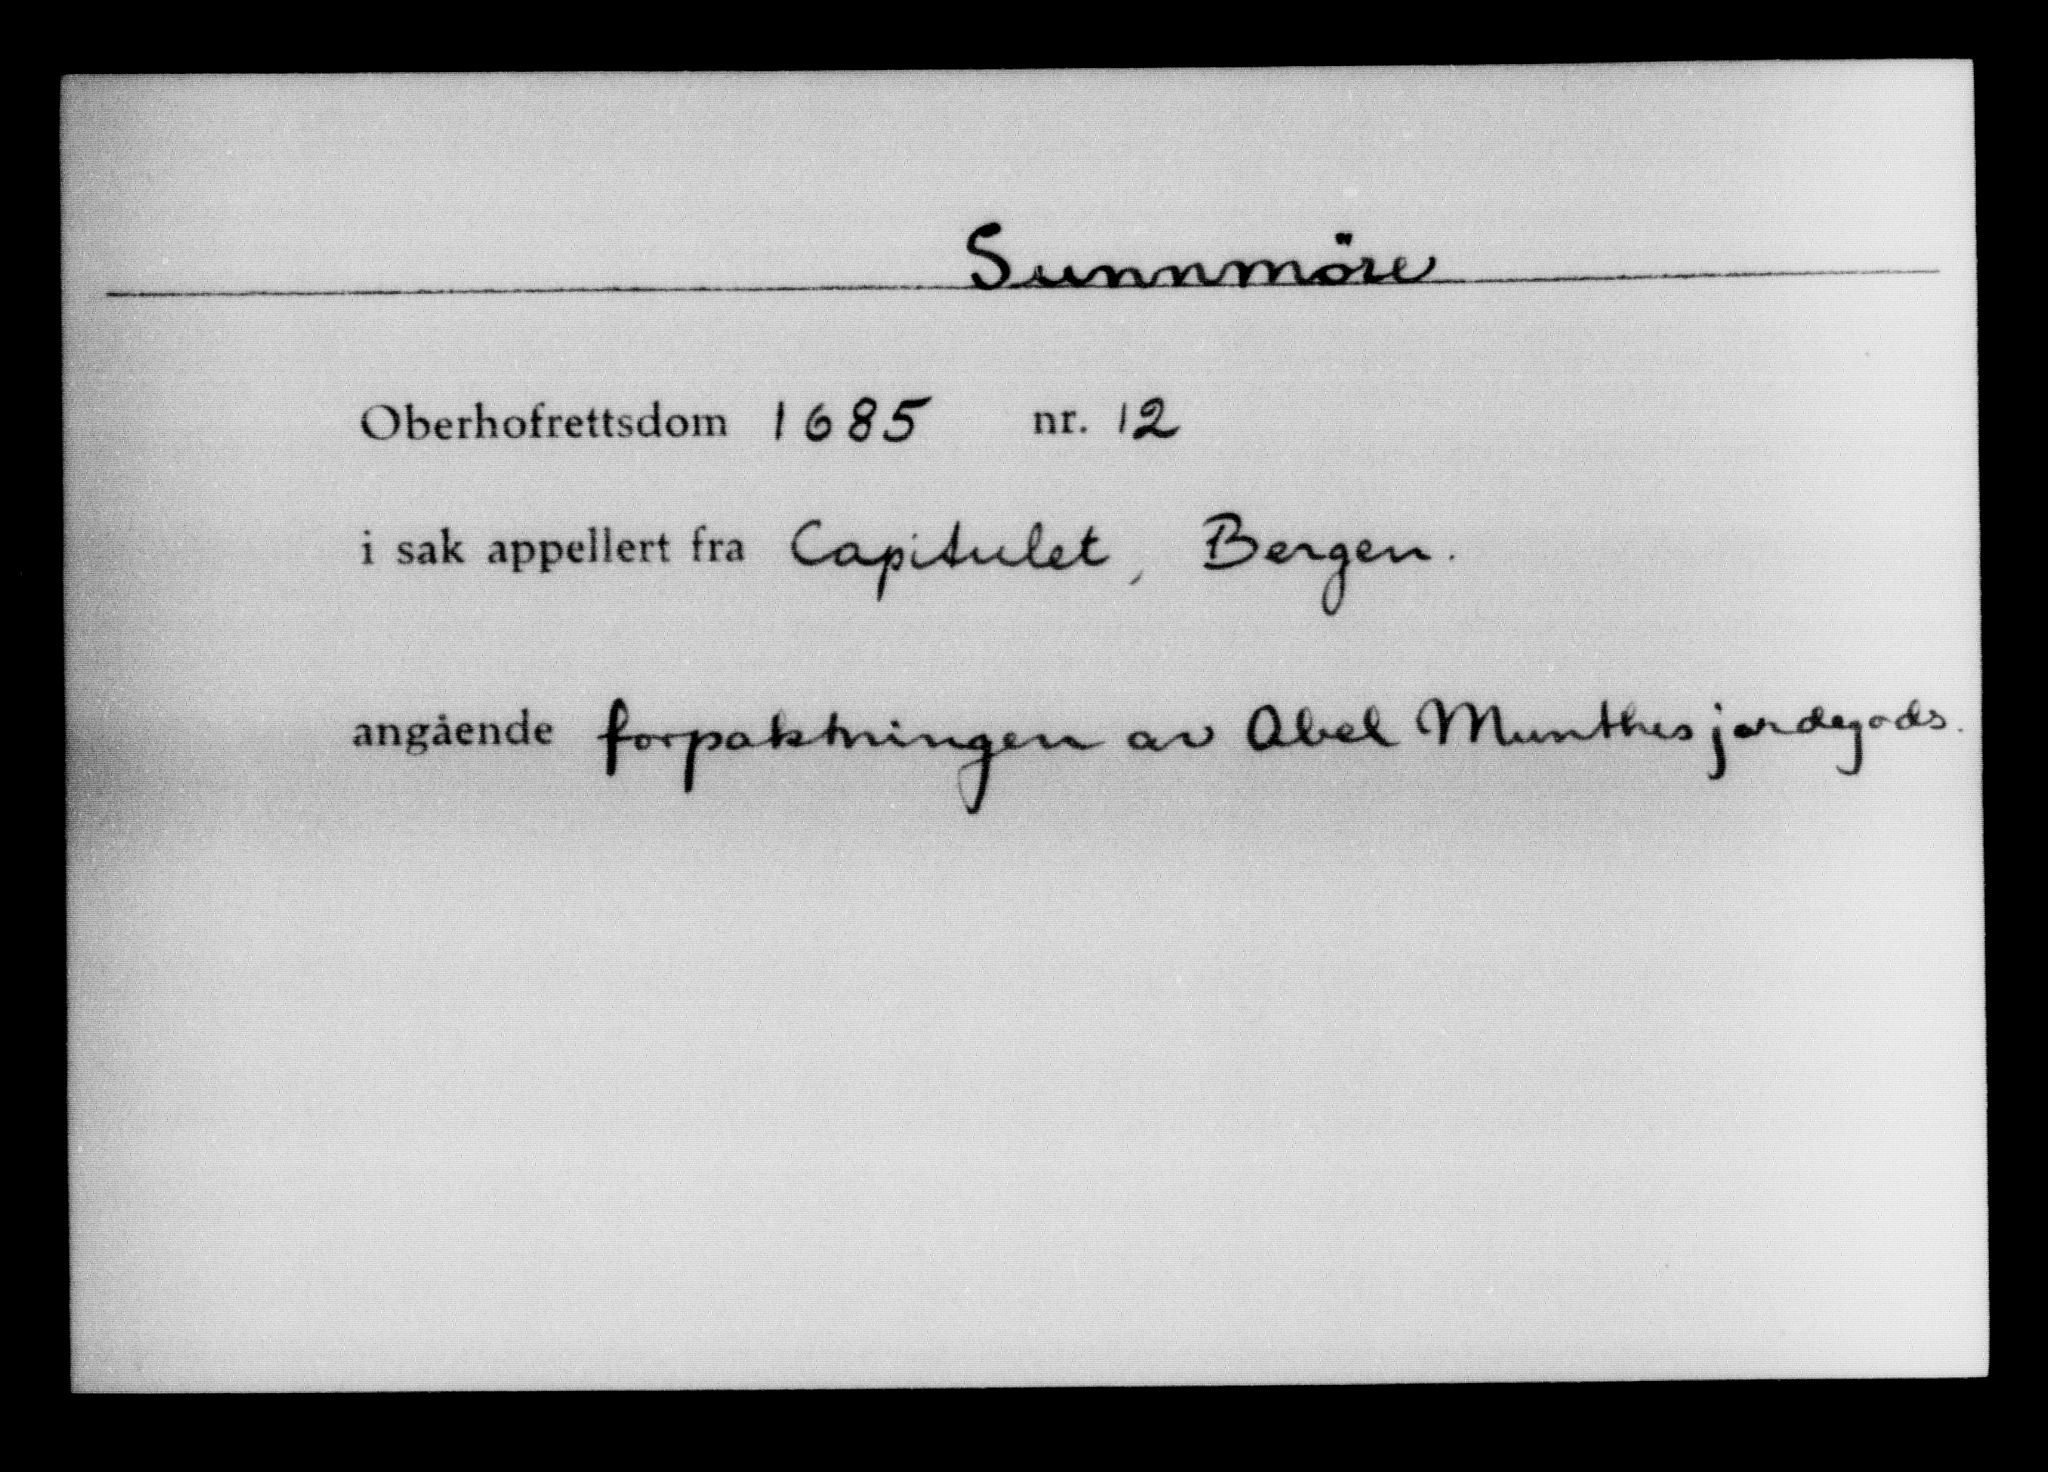 Sunnmöre
Oberhofrettsdom 1685 nr. 12
i sak appellert fra Capitulet, Bergen.
angående forpaktningen av Abel Munthes jordegods.